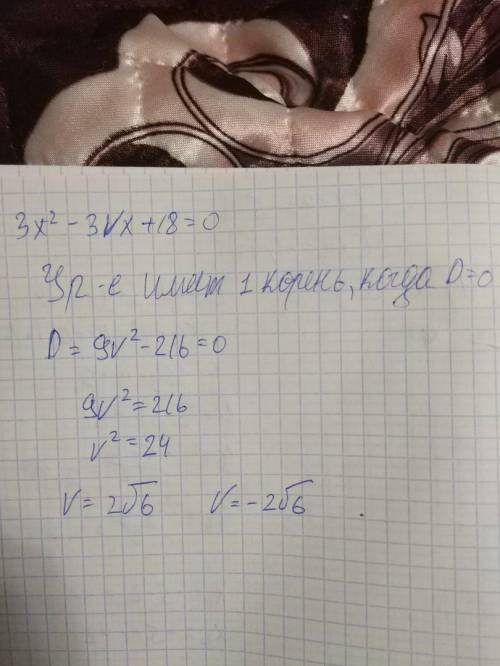 3x² - 3Vx + 18 = 0
Ур-е имеет 1 корень, когда D = 0
D = 9v² - 216 = 0
9v² = 216
v² = 24
V = 2√6 V = -2√6